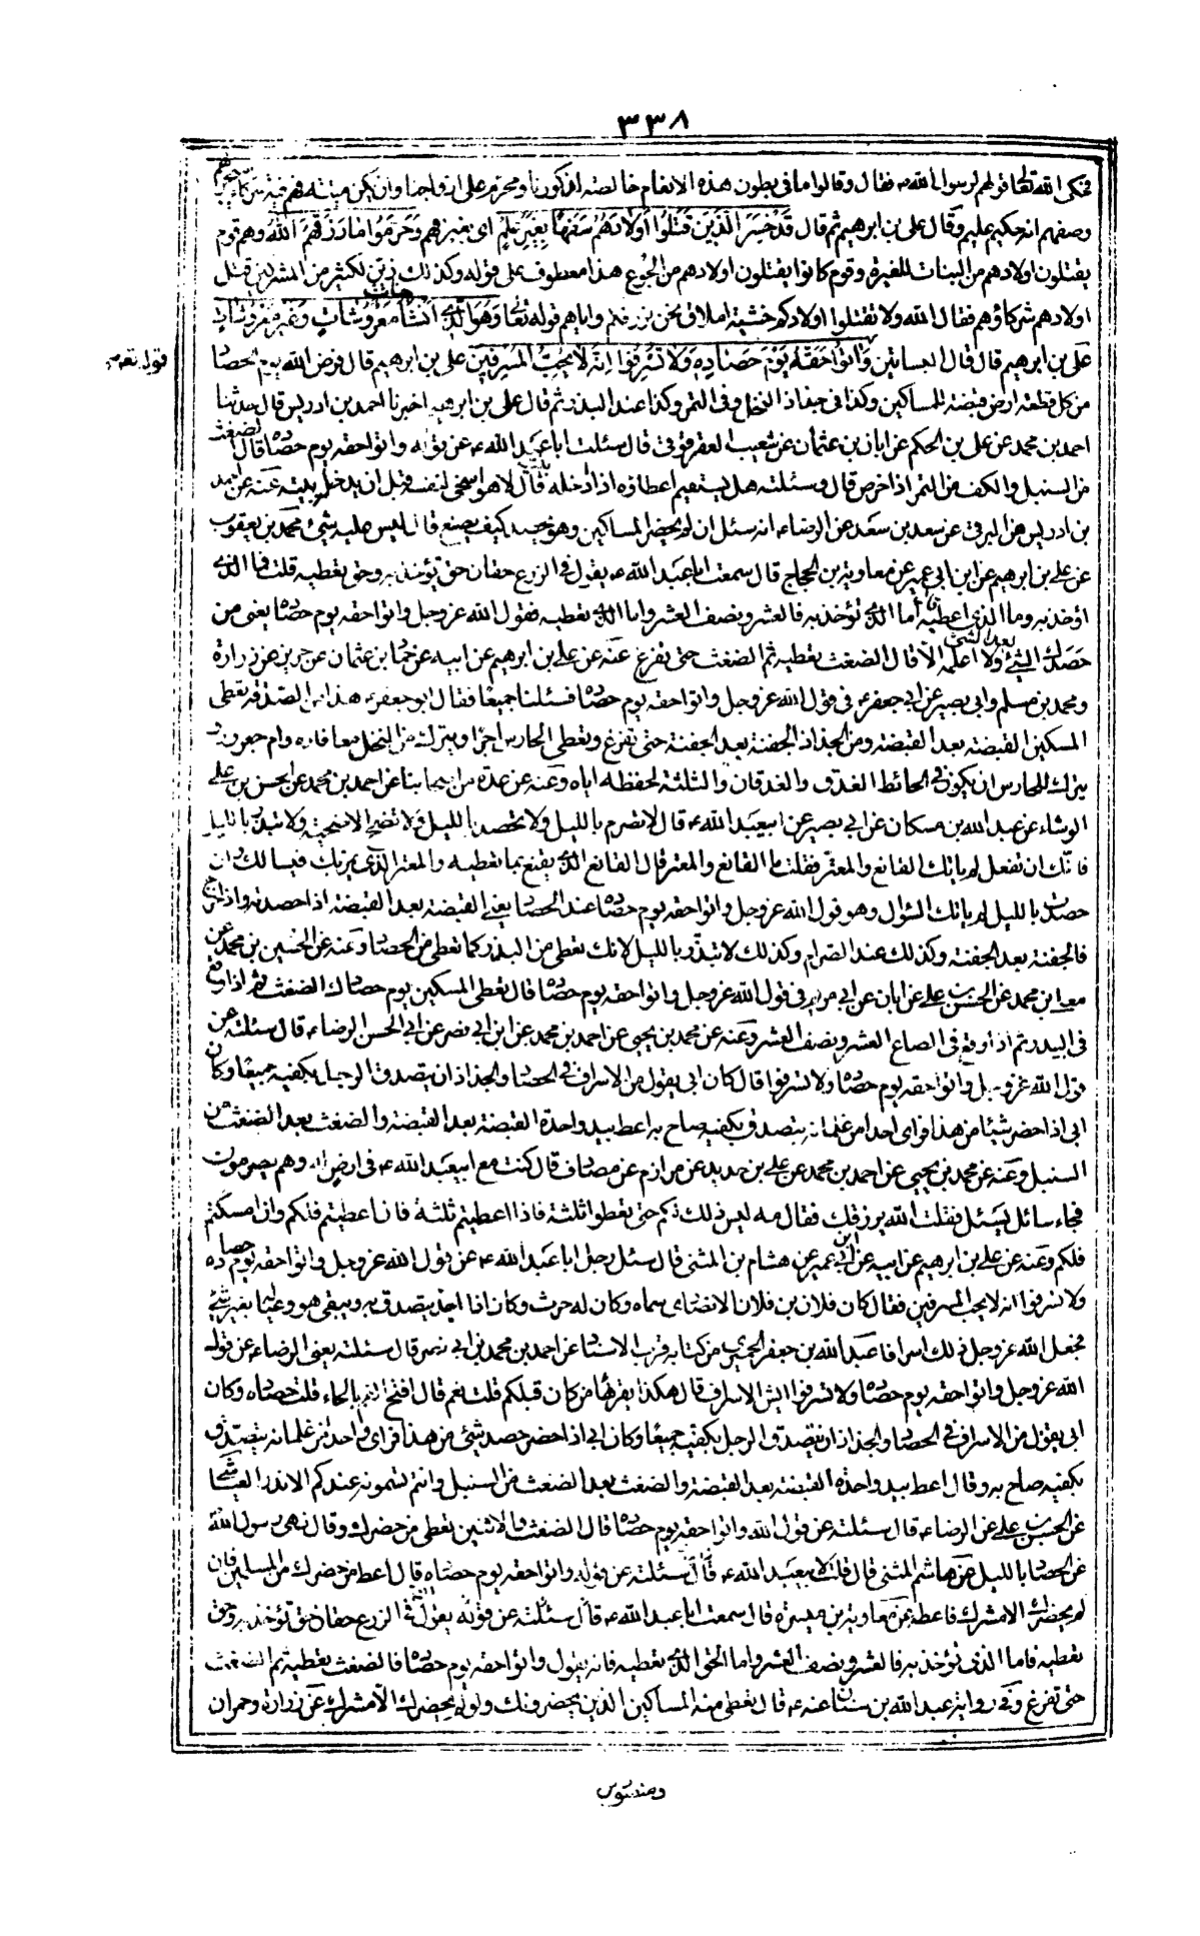 ٣٣٨
فحكى الله تعالى قولهم لرسول الله ص فقال وقالوا ما في بطون هذه الانعام خالصة لذكورنا ومحرم على ازواجنا وان يكن ميتة فهم فيه شركاء سيجزيهم
وصفهم انه حكيم عليم وقال علي بن ابرهيم ثم قال قَدْ خَسِرَ الَّذِينَ قَتَلُوا اَوْلَادَهُمْ سَفَهًا بِغَيْرِ عِلْمٍ اى بغير فهم وَحَرَّمُوا مَا رَزَقَهُمُ اللّٰهُ وهم قوم
يقتلون اولادهم من البنات للغيرة وقوم كانوا يقتلون اولادهم من الجوع هذا معطوف على قوله وكذلك زين لكثير من المشركين قتل
اولادهم شركاؤهم فقال الله ولا تقتلوا اولادكم خشية املاق نحن نرزقكم واياهم قوله تعالى وَهُوَ الَّذِي اَنْشَأَ جنات مَعْرُوشَاتٍ وَغَيْرَ مَعْرُوشَاتٍ
على بن ابرهيم قال قال البساتين وَآتُوا حَقَّهُ يَوْمَ حَصَادِهِ وَلَا تُسْرِفُوا اِنَّهُ لَا يُحِبُّ الْمُسْرِفِينَ على بن ابرهيم قال فرض الله يوم الحصاد
قوله تعالى
من كل قطعة ارض قبضة للمساكين وكذا في جذاذ النخل وفي التمر وكذا عند البذر ثم قال على بن ابرهيم اخبرنا احمد بن ادريس قال حدثنا
احمد بن محمد عن على بن الحكم عن ابان بن عثمان عن شعيب العقرقوفي قال سئلت ابا عبد الله ع عن قوله واتوا حقه يوم حصاده قال الضغث
من السنبل والكف من التمر اذا خرص قال وسئلته هل يستقيم اعطاؤه اذا ادخله بيته قال لا هو اسخى لنفسه قبل ان يدخل بيته عنه عن احمد
بن ادريس عن البرقي عن سعد بن سعد عن الرضا ع انه سئل ان لم يحضر المساكين وهو يحصد كيف يصنع قال ليس عليه شئ محمد بن يعقوب
عن علي بن ابرهيم عن ابن ابي عمير عن معاوية بن الحجاج قال سمعت ابا عبد الله ع يقول في الزرع حقان حق تؤخذ به وحق تعطيه قلت فما الذي
اؤخذ به وما الذي اعطيه قال اما الذي تؤخذ به فالعشر ونصف العشر واما الذي تعطيه فقول الله عز وجل واتوا حقه يوم حصاده يعني من
حصدك الشئ بعد الشئ ولا اعلمه الا قال الضغث تعطيه ثم الضغث حتى يفرغ عنه عن علي بن ابرهيم عن ابيه عن حماد بن عثمان عن حريز عن زرارة
ومحمد بن مسلم وابي بصير عن ابي جعفر ع في قول الله عز وجل واتوا حقه يوم حصاده فسئلنا جميعًا فقال ابو جعفر ع هذا من الصدقة تعطى
المسكين القبضة بعد القبضة ومن الجذاذ الجفنة بعد الجفنة حتى تفرغ وتعطى الحارس اجرًا ويترك من النخل معا فارة وام جعرور
يترك للحارس ان يكون في الحائط الغدق والغدقان والثلثة لحفظه اياه وعنه عن عدة من اصحابنا عن احمد بن محمد عن الحسن بن علي
الوشاء عن عبد الله بن مسكان عن ابي بصير عن ابيعبد الله ع قال لا تصرم بالليل ولا تحصد بالليل ولا تضح الاضحية ولا تبذر بالليل
فانك ان تفعل لم ياتك القانع والمعتر فقلت ما القانع والمعتر قال القانع الذي يقنع بما تعطيه والمعتر الذي يمر بك فيسالك وان
حصدت بالليل لم ياتك السؤل وهو قول الله عز وجل واتوا حقه يوم حصاده عند الحصاد يعني القبضة بعد القبضة اذا حصدته واذا خرج
فالجفنة بعد الجفنة وكذلك عند الصرام وكذلك لا تبذر بالليل لانك تعطى من البذر كما تعطى من الحصاد وعنه عن الحسين بن محمد عن
معلى بن محمد عن الحسن بن علي عن ابان عن ابي مريم في قول الله عز وجل واتوا حقه يوم حصاده قال تعطى المسكين يوم حصادك الضغث ثم اذا وقع
في البيدر ثم اذا وقع في الصاع العشر ونصف العشر وعنه عن محمد بن يحيى عن احمد بن محمد عن ابن ابي نصر عن ابي الحسن الرضا ع قال سئلته عن
قول الله عز وجل واتوا حقه يوم حصاده ولا تسرفوا قال كان ابي يقول من الاسراف في الحصاد والجذاذ ان يتصدق الرجل بكفيه جميعًا وكان
ابي اذا حضر شيئا من هذا فراى احدا من غلمانه يتصدق بكفيه صاح به اعط بيد واحدة القبضة بعد القبضة والضغث بعد الضغث من
السنبل وعنه عن محمد بن يحيى عن احمد بن محمد عن علي بن حديد عن مرازم عن مصادف قال كنت مع ابيعبد الله ع في ارض له وهم يصرمون
فجاء سائل يسئل فقلت الله يرزقك فقال مه ليس ذلك لكم حتى تعطوا ثلثة فاذا اعطيتم ثلثة فان اعطيتم فلكم وان امسكتم
فلكم وعنه عن علي بن ابرهيم عن ابيه عن ابن ابي عمير عن هشام بن المثنى قال سئل رجل ابا عبد الله ع عن قول الله عز وجل واتوا حقه يوم حصاده
ولا تسرفوا انه لا يحب المسرفين فقال كان فلان بن فلان الانصاري سماه وكان له حرث وكان اذا اجذ يتصدق به ويبقى هو وعياله بغير شئ
فجعل الله عز وجل ذلك اسرافا عبد الله بن جعفر الحميري من كتابه قرب الاسناد عن احمد بن محمد بن ابي نصر قال سئلته يعني الرضا ع عن قوله
الله عز وجل واتوا حقه يوم حصاده ولا تسرفوا ايش الاسراف قال هكذا يقرئها من كان قبلكم قلت نعم قال افتح الفم بالحاء قلت حصاده وكان
ابي يقول من الاسراف في الحصاد والجذاذ ان يتصدق الرجل بكفيه جميعًا وكان ابي اذا حضر حصد شئ من هذا فراى واحدا من غلمانه يتصدق
بكفيه صاح به وقال اعط بيد واحدة القبضة بعد القبضة والضغث بعد الضغث من السنبل وانتم تسمونه عندكم الاندر العياشي
عن الحسن بن علي عن الرضا ع قال سئلته عن قول الله واتوا حقه يوم حصاده قال الضغث والاثنين تعطى من حضرك وقال نهى رسول الله
عن الحصاد بالليل عن هاشم المثنى قال قلت لابيعبد الله ع قال سئلته عن قوله واتوا حقه يوم حصاده قال اعط من حضرك من المسلمين فان
لم يحضرك الا مشرك فاعطه عن معاوية بن ميسرة قال سمعت ابا عبد الله ع قال سئلته عن قوله يقول في الزرع حقان حق تؤخذ به وحق
تعطيه فاما الذي تؤخذ به فالعشر ونصف العشر واما الحق الذي تعطيه فانه يقول واتوا حقه يوم حصاده فالضغث تعطيه ثم الضغث
حتى تفرغ وفي رواية عبد الله بن سنان عنه ع قال تعطى منه المساكين الذين يحضرونك ولو لم يحضرك الا مشرك عن زرارة وحمران